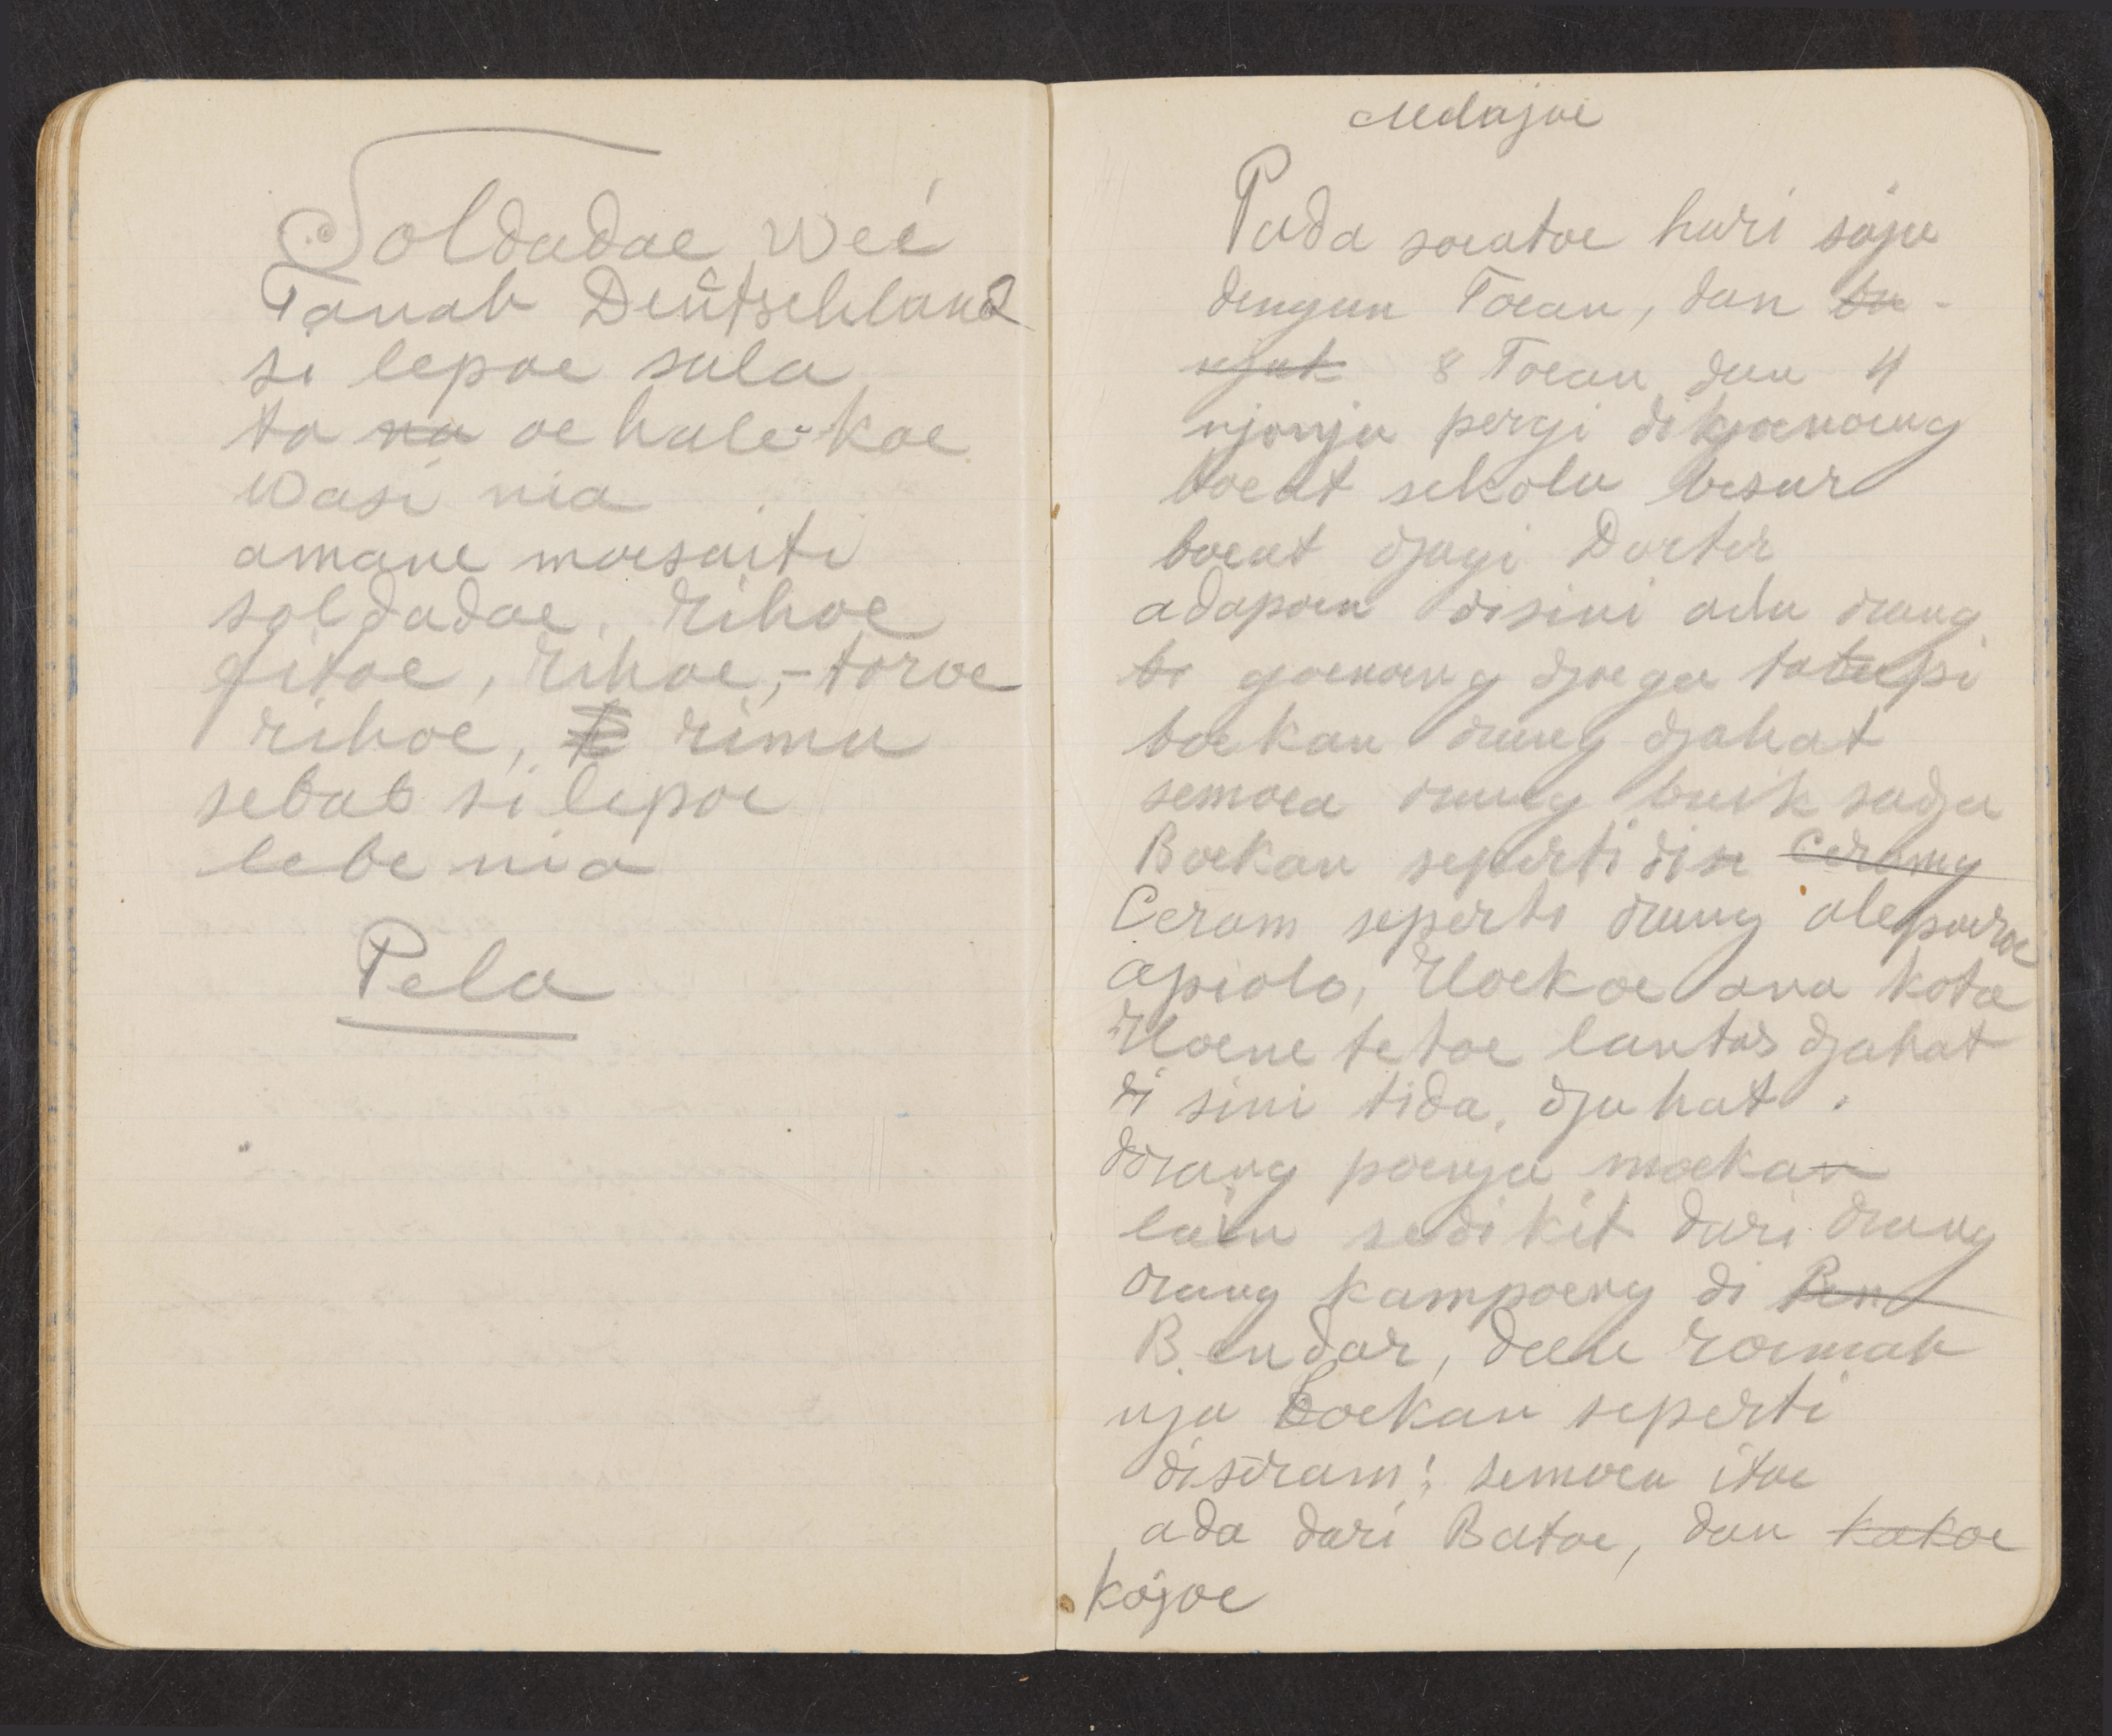 Soldadoe weé
Tanah Deûtschland
si lepoe sala
ta na oe hale-koe
wasi nia
amane moesaiti
soldadoe, rihoe
fitoe, rihoe,- toroe
rihoe, rima
sebab si lepoe
lebe nia
Pela
Melajoe
Pada soeatoe hari saja
dengan Toean, dan ba-
njak 8 Toean dan 4
njonja pergi digoenoeng
boeat sekola besar
boeat djagi Docter
adapoen disini ada orang
bi goenoeng djoega tatapi
boekan orang djahat
semoea orang baik sadja
Boekan seperti dise Ceramg
Ceram seperti orang alepoeroe
apiolo, Hoekoe ana kota
Hoene tetoe lantas djahat
di sini tida, djahat.
dorang poenja moekan
lain sedikit dari orang
orang kampoeng di Ben
Bendar, dan roemah
nja boekan seperti
diseram; semoea itoe
ada dari Batoe, dan kakoe
kajoe